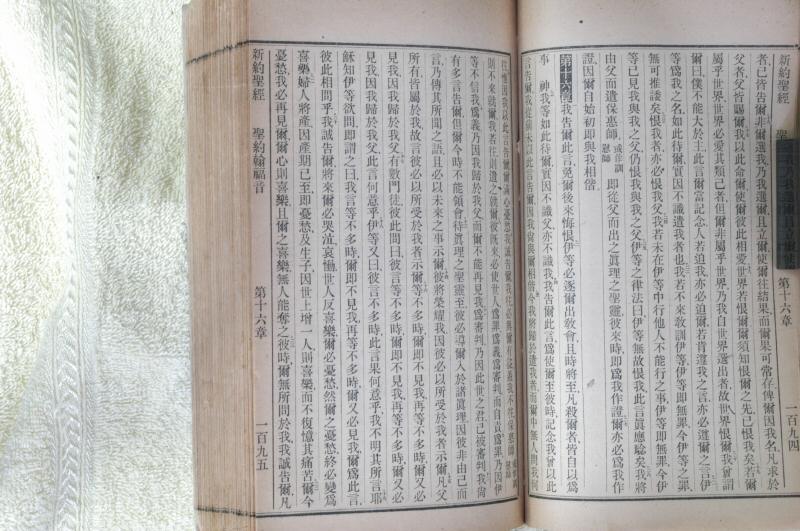 新約聖經
一百九四
者、已皆告爾、非爾選我、乃我選爾、且立爾、使爾往結果、而爾果可常存、俾爾因我名、凡求於
父者、父皆賜爾、我以此命爾、使爾彼此相愛、世界若恨爾、爾須知恨爾之先、已恨我矣、若爾
屬乎世界、世界必愛其類己者、但爾非屬乎世界、乃我自世界選出者、故世界恨爾、我曾謂
爾曰、僕不能大於主、此言爾當記念、人若迫我、亦必迫爾、若肯遵我之言、亦必遵爾之言、伊
等爲我之名、如此待爾、實因不識遣我者也、我若不來教訓伊等、伊等即無罪、今伊等之罪、
無可推諉矣、恨我者、亦必恨我父、我若未在伊等中行他人不能行之事、伊等即無罪、今伊
等已見我與我之父、仍恨我與我之父、伊等之律法曰、伊等無故恨我、此言眞應驗矣、我將
由父而遣保惠師、或作訓慰師 即從父而出之眞理之聖靈、彼來時、即爲我作證、爾亦必爲我作
證、因爾自始初即與我相偕、
第十六章 我告爾此言、免爾後來悔恨、伊等必逐爾出教會、且時將至、凡殺爾者、皆自以爲
事 神、我等如此待爾、實因不識父、亦不識我、我告爾此言、爲使爾至彼時、記念我曾以此
言告爾、我從前未言此告爾、因我尚與爾相偕、今我將歸於遣我者、而爾中無人問我何
則不來就爾、我若往、則遣之就爾、彼旣來、必使世人、爲罪、爲義、爲審判、而自責、爲罪、乃因伊
等不信我、爲義、乃因我歸於我父、而爾不能再見我、爲審判、乃因此世之君、已被審判、我尚
有多言告爾、但爾今時不能領會、待眞理之聖靈至、彼必導爾入於諸眞理、因彼非由己而
言、乃傳其所聞之語、且必以未來之事示爾、彼將榮耀我、因彼必以所受於我者示爾、凡父
所有、皆屬於我、故言彼必以所受於我者示爾、爾等不多時、爾即不見我、再等不多時、爾又必
見我、因我歸於我父、有數門徒彼此間曰、彼言等不多時、爾即不見我、再等不多時、爾又必
見我、因我歸於我父、此言何意乎、伊等又曰、彼言不多時、此言果何意乎、我不明其所言、耶
穌知伊等欲問、即謂之曰、我言等不多時、爾即不見我、再等不多時、爾又必見我、爾爲此言、
彼此相問乎、我誠告爾、將來爾必哭泣哀慟、世人反喜樂、爾必憂愁、然爾之憂愁、終必變爲
喜樂、婦人將產、因產期已至、即憂愁、及生子、因世上增一人、則喜樂、而不復憶其痛苦、爾今
憂愁、我必再見爾、爾心則喜樂、且爾之喜樂、無人能奪之、彼時、爾無所問於我、我誠告爾、凡
新約聖經 聖約翰福音 第十六章 一百九五